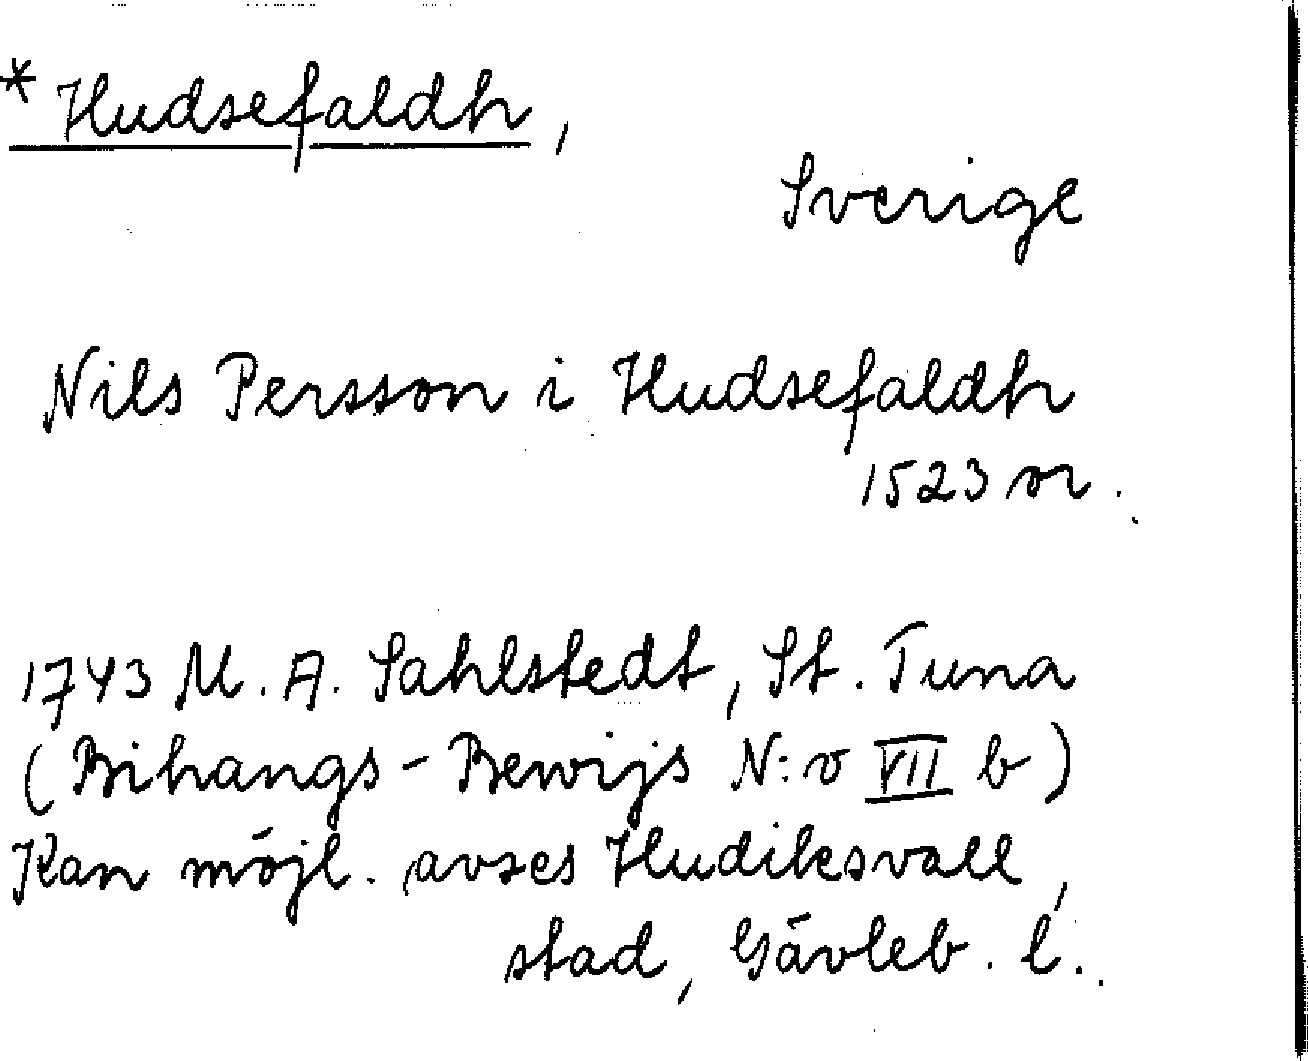 * Hudsefaldh,
Sverige
Nils Persson i Hudsefaldh
1523 or.
1743 M. A. Sahlstedt, St. Tuna
(Bihangs-Bewijs N:o VII b)
Kan möjl. avses Hudiksvall,
stad, Gävleb. l.